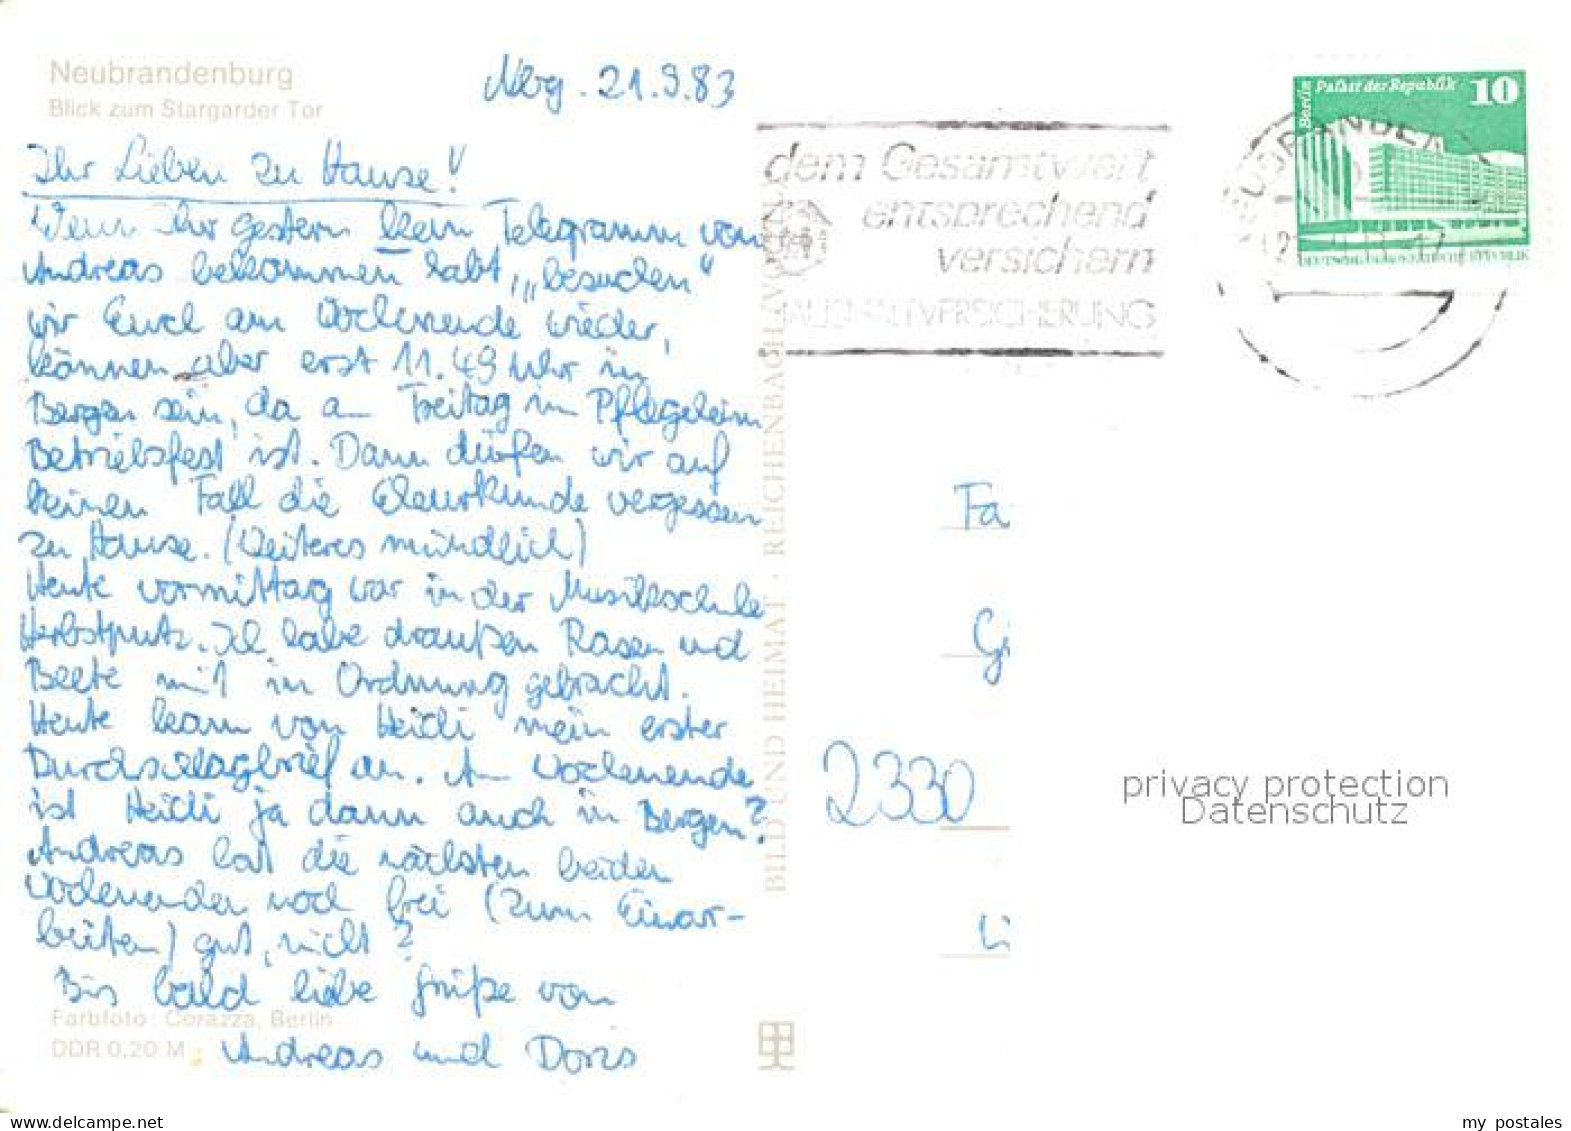 Neubrandenburg
Blick zum Stargarder Tor
Nbg. 21.9.83
Ihr Lieben zu Hause!
Wenn Ihr gestern kein Telegramm von
Andreas bekommen habt, „besuchen"
wir Euch am Wochenende wieder,
können aber erst 11.49 Uhr in
Bergen sein, da am Freitag im Pflegeheim
Betriebsfest ist. Dann dürfen wir auf
keinen Fall die Eheurkunde vergessen
zu Hause. (Weiteres mündlich)
Heute vormittag war in der Musikschule
Herbstputz. Ich habe draußen Rasen und
Beete mit in Ordnung gebracht.
Heute kam von Heidi mein erster
Durchschlagbrief an. Am Wochenende
ist Heidi ja dann auch in Bergen?
Andreas hat die nächsten beiden
Wochenenden noch frei (zum Einar-
beiten) gut, nicht?
Bis bald liebe Grüße von
Andreas und Doris
Farbfoto: Corazza, Berlin
DDR 0,20 M
BILD UND HEIMAT · REICHENBACH (VOGTL
dem Gesamtwert
entsprechend
versichern
Berlin Palast der Republik 10
DEUTSCHE DEMOKRATISCHE REPUBLIK
Fa
Gi
2330
Li
privacy protection
Datenschutz
my postales